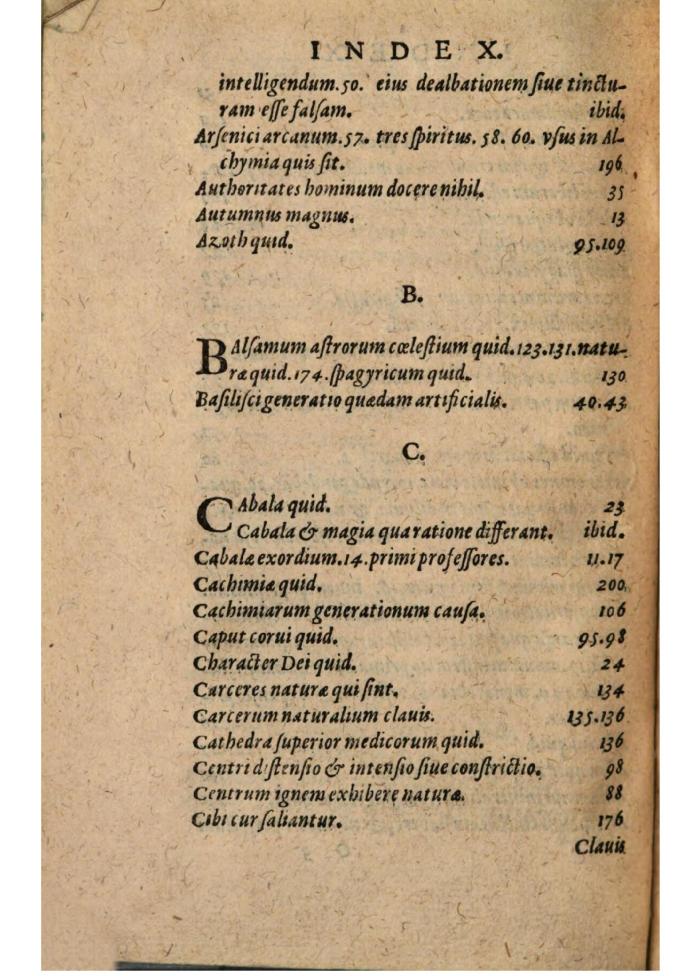 I N D E X.
intelligendum. 50. eius dealbationem ſiue tinctu-
ram eſſe falſam. ibid.
Arſenici arcanum. 57. tres ſpiritus. 58. 60. vſus in Al-
chymia quis ſit. 196
Authoritates hominum docere nihil. 35
Autumnus magnus. 13
Azoth quid. 95.109
B.
BAlſamum aſtrorum cœleſtium quid. 123.131. natu-
ræ quid. 174. ſpagyricum quid. 130
Baſiliſci generatio quædam artificialis. 40.43
C.
CAbala quid. 23
Cabala & magia qua ratione differant. ibid.
Cabalæ exordium. 14. primi profeſſores. 11.17
Cachimiæ quid. 200
Cachimiarum generationum cauſa. 106
Caput corui quid. 95.98
Character Dei quid. 24
Carceres naturæ qui ſint. 134
Carcerum naturalium clauis. 135.136
Cathedra ſuperior medicorum quid. 136
Centri diſtenſio & intenſio ſiue conſtrictio. 98
Centrum ignem exhibere naturæ. 88
Cibi cur ſaliantur. 176
Clauis